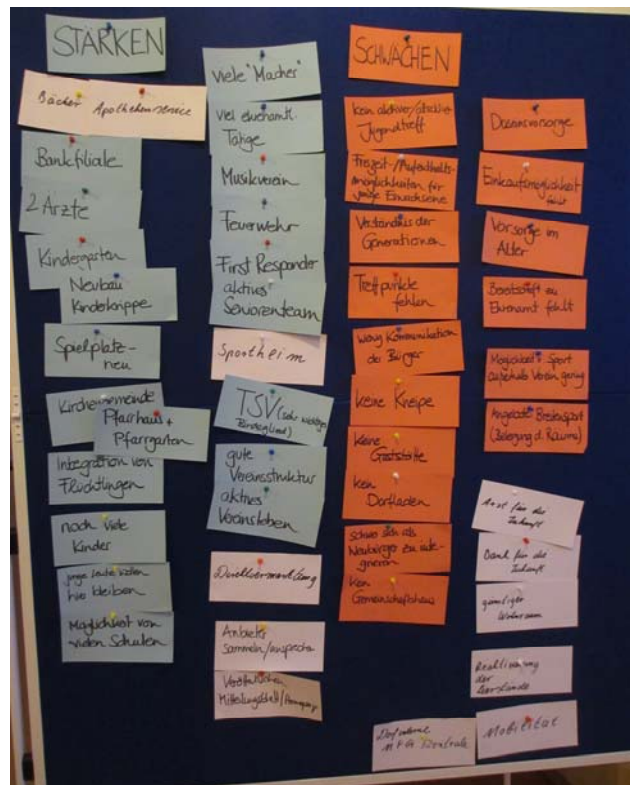 STÄRKEN
Bäcker Apothekenservice
Bankfiliale
2 Ärzte
Kindergarten
Neubau
Kinderkrippe
Spielplatz-
neu
Kirchengemeinde
Pfarrhaus +
Pfarrgarten
Integration von
Flüchtlingen
noch viele
Kinder
junge Leute wollen
hier bleiben
Möglichkeit von
vielen Schulen
viele "Macher"
viel ehrenamtl.
Tätige
Musikverein
Feuerwehr
First Responder
aktives
Seniorenteam
Sportheim
TSV (sehr wichtiges
Bindeglied)
gute
Vereinsstruktur
aktives
Vereinsleben
Direktvermarktung
Anbieter
sammeln/ansprechen
Veröffentlichen
Mitteilungsblatt/Homepage
SCHWÄCHEN
kein aktiver/attraktiver
Jugendtreff
Freizeit-/Aufenthalts-
möglichkeiten für
junge Erwachsene
Verständnis der
Generationen
Treffpunkte
fehlen
wenig Kommunikation
der Bürger
keine Kneipe
keine
Gaststätte
kein
Dorfladen
schwer sich als
Neubürger zu inte-
grieren
kein
Gemeinschaftshaus
Daseinsvorsorge
Einkaufsmöglichkeit
fehlt
Vorsorge im
Alter
Bereitschaft zu
Ehrenamt fehlt
Möglichkeit Sport
außerhalb Verein gering
Angebote Breitensport
(Belegung d. Räume)
Arzt für die
Zukunft
Bank für die
Zukunft
günstiger
Wohnraum
Reaktivierung
der
Leerstände
Mobilität
MFG Zentrale